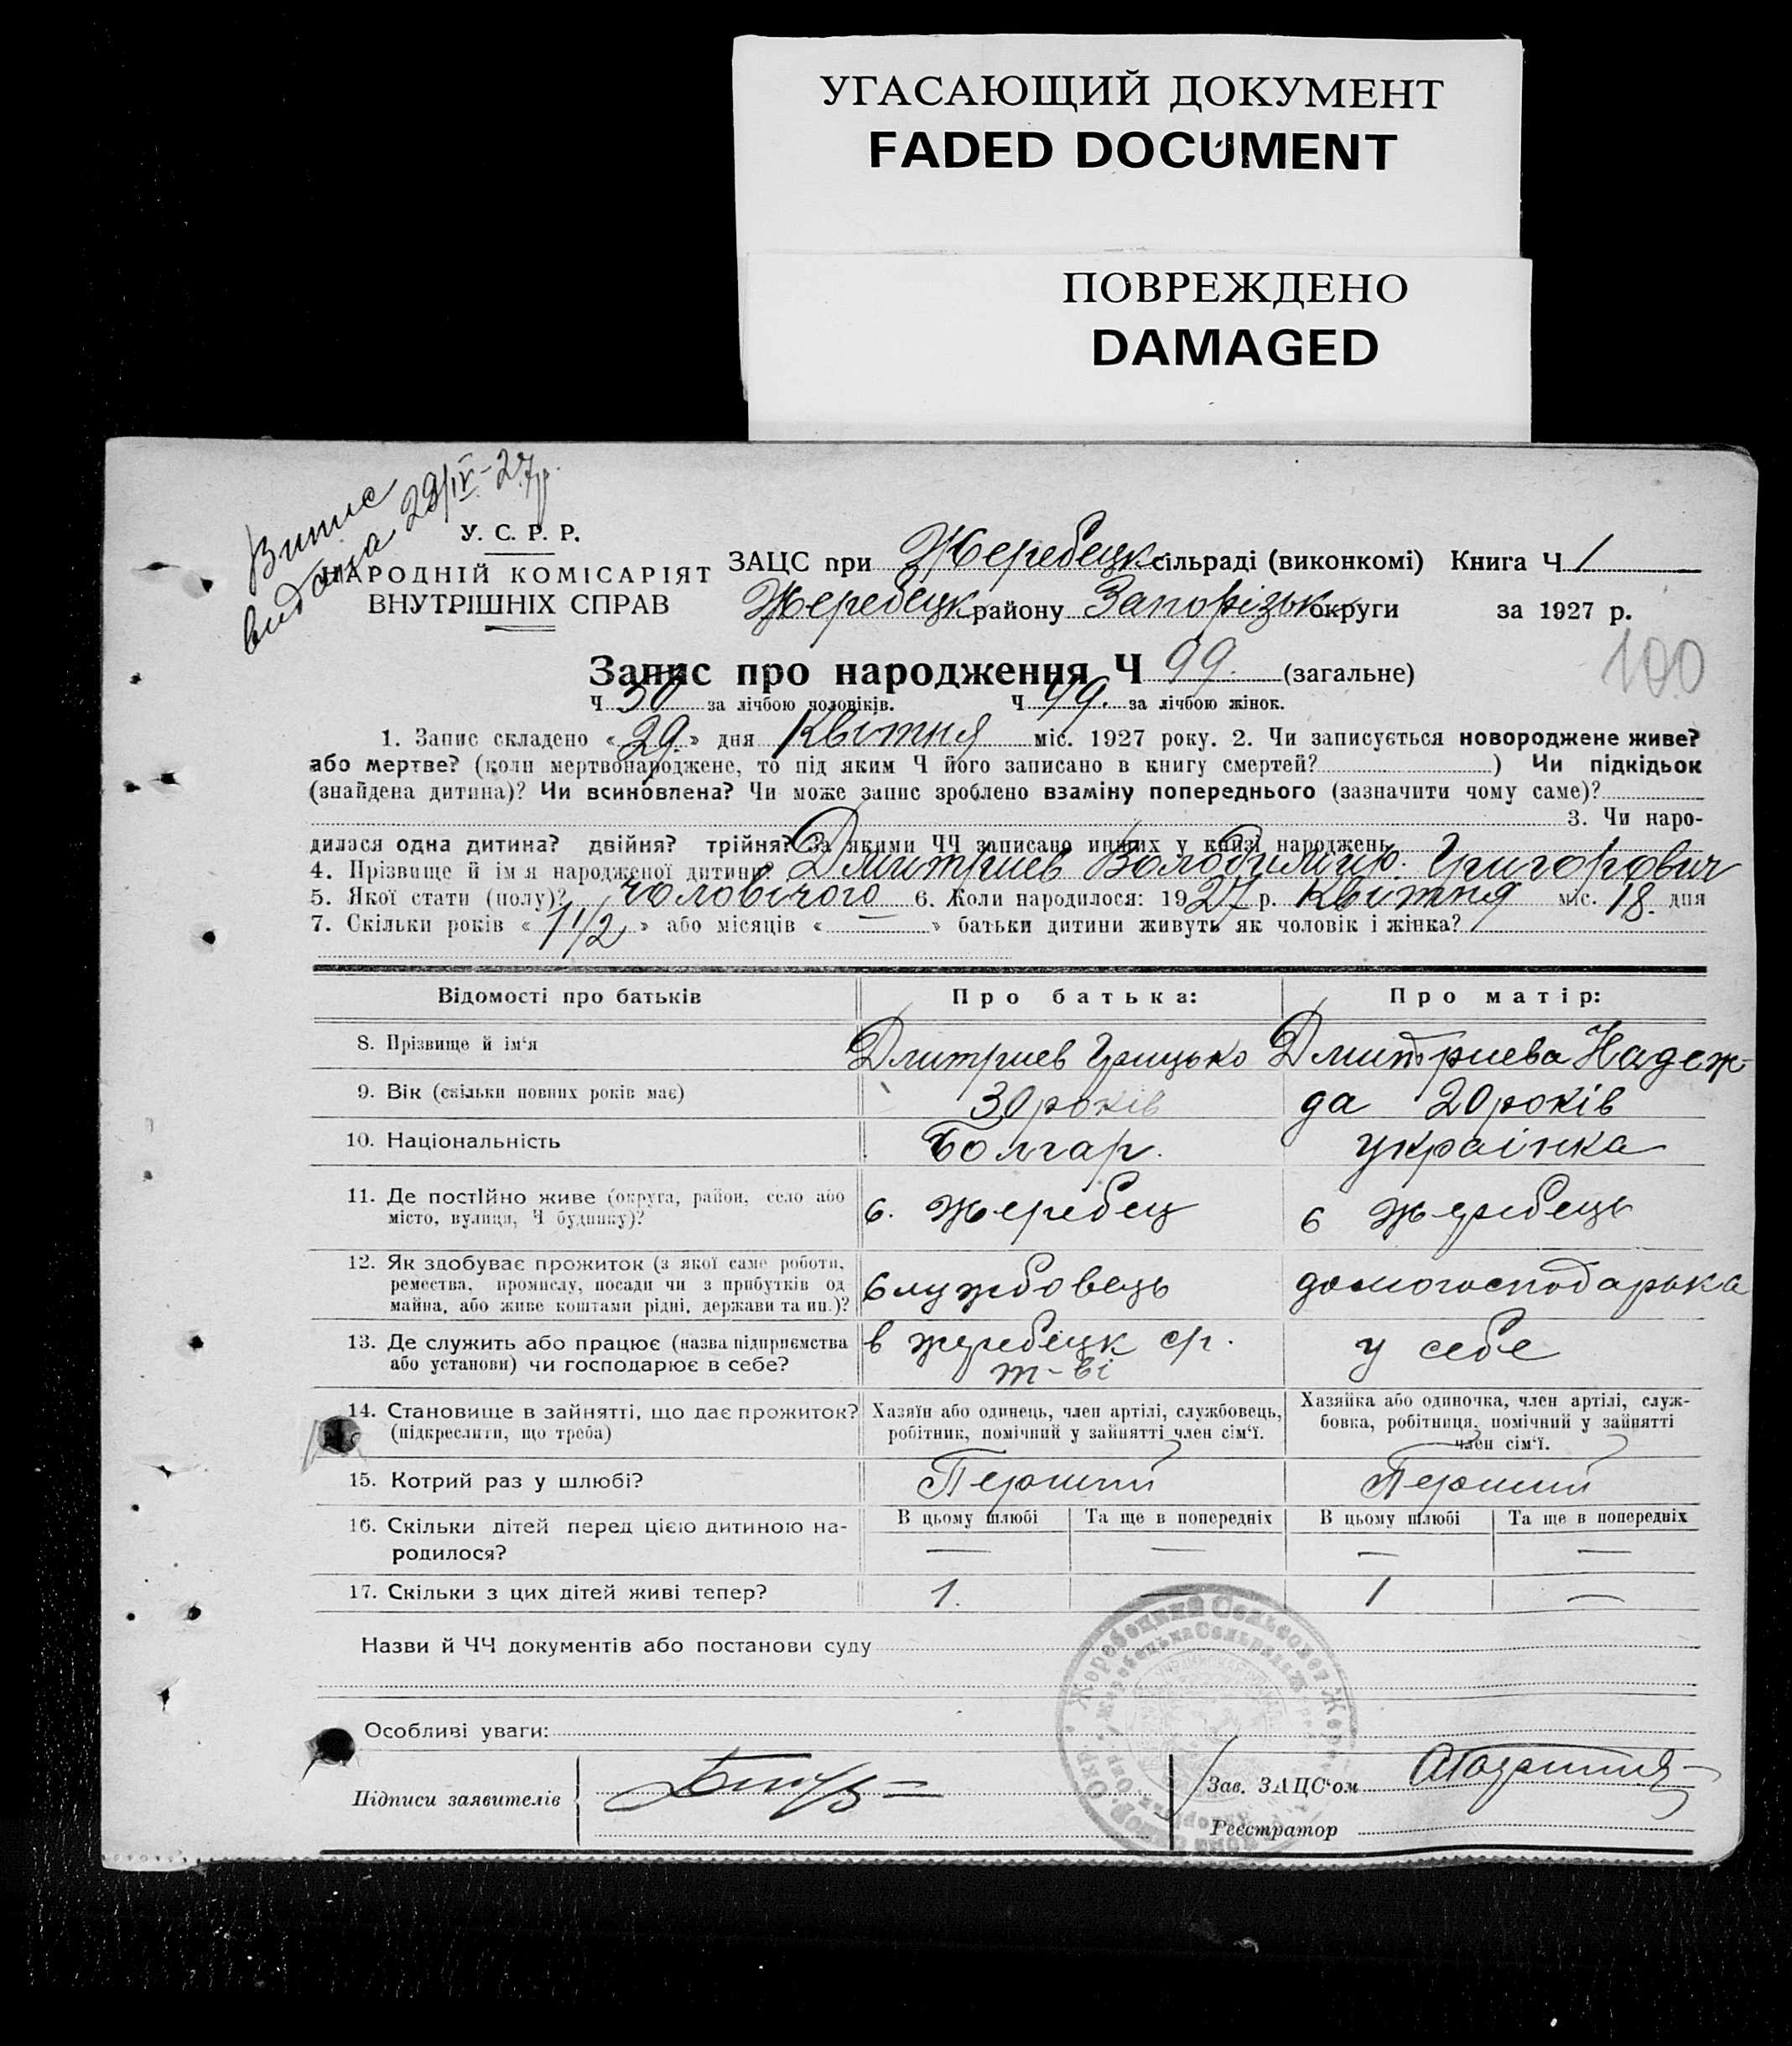 УГАСАЮЩИЙ ДОКУМЕНТ
FADED DOCUMENT
ПОВРЕЖДЕНО
DAMAGED
Випис
видана 29/IV-27р.
У. С. Р. Р.
НАРОДНІЙ КОМІСАРІЯТ
ВНУТРІШНІХ СПРАВ
ЗАЦС при Жеребецк сільраді (виконкомі) Книга Ч 1
Жеребецк району Запорізьк округи за 1927 р.
100
Запис про народження Ч 99. (загальне)
Ч 50 за лічбою чоловіків. Ч 49. за лічбою жінок.
1. Запис складено «29.» дня Квітня міс. 1927 року. 2. Чи записується новороджене живе?
або мертве? (коли мертвонароджене, то під яким Ч його записано в книгу смертей? ) Чи підкідьок
(знайдена дитина)? Чи всиновлена? Чи може запис зроблено взаміну попереднього (зазначити чому саме)?
3. Чи наро-
дилася одна дитина? двійня? трійня? За якими ЧЧ записано инших у книзі народжень
4. Прізвище й ім'я народженої дитини? Дмитриев Володимир. Григорович
5. Якої стати (полу)? чоловічого 6. Коли народилося: 1927 р. Квітня міс. 18. дня
7. Скільки років «1 1/2» або місяців «—» батьки дитини живуть як чоловік і жінка?
Відомості про батьків Про батька: Про матір:
8. Прізвище й ім'я Дмитриев Грицько Дмитриева Надеж-
9. Вік (скільки повних років має) 30 років да 20 років
10. Національність Болгар. українка
11. Де постійно живе (округа, район, село або
місто, вулиця, Ч будинку)? с. Жеребец с Жеребець
12. Як здобуває прожиток (з якої саме роботи,
ремества, промислу, посади чи з прибутків од
майна, або живе коштами рідні, держави та ин.)? Службовець домогосподарька
13. Де служить або працює (назва підприємства
або установи) чи господарює в себе? в жеребецк с/г. т-ві у себе
14. Становище в зайнятті, що дає прожиток?
(підкреслити, що треба)
Хазяїн або одинець, член артілі, службовець,
робітник, помічний у зайнятті член сім'ї.
Хазяйка або одиночка, член артілі, служ-
бовка, робітниця, помічний у зайнятті
член сім'ї.
15. Котрий раз у шлюбі? Перший Перший
16. Скільки дітей перед цією дитиною на-
родилося?
В цьому шлюбі Та ще в попередніх В цьому шлюбі Та ще в попередніх
— — — —
17. Скільки з цих дітей живі тепер? 1. — 1 —
Назви й ЧЧ документів або постанови суду
Особливі уваги:
Підписи заявителів
Зав. ЗАЦС'ом
Реєстратор